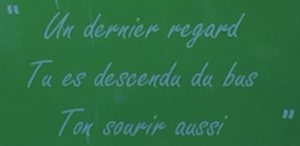 " Un dernier regard
Tu es descendu du bus
Ton sourir aussi "